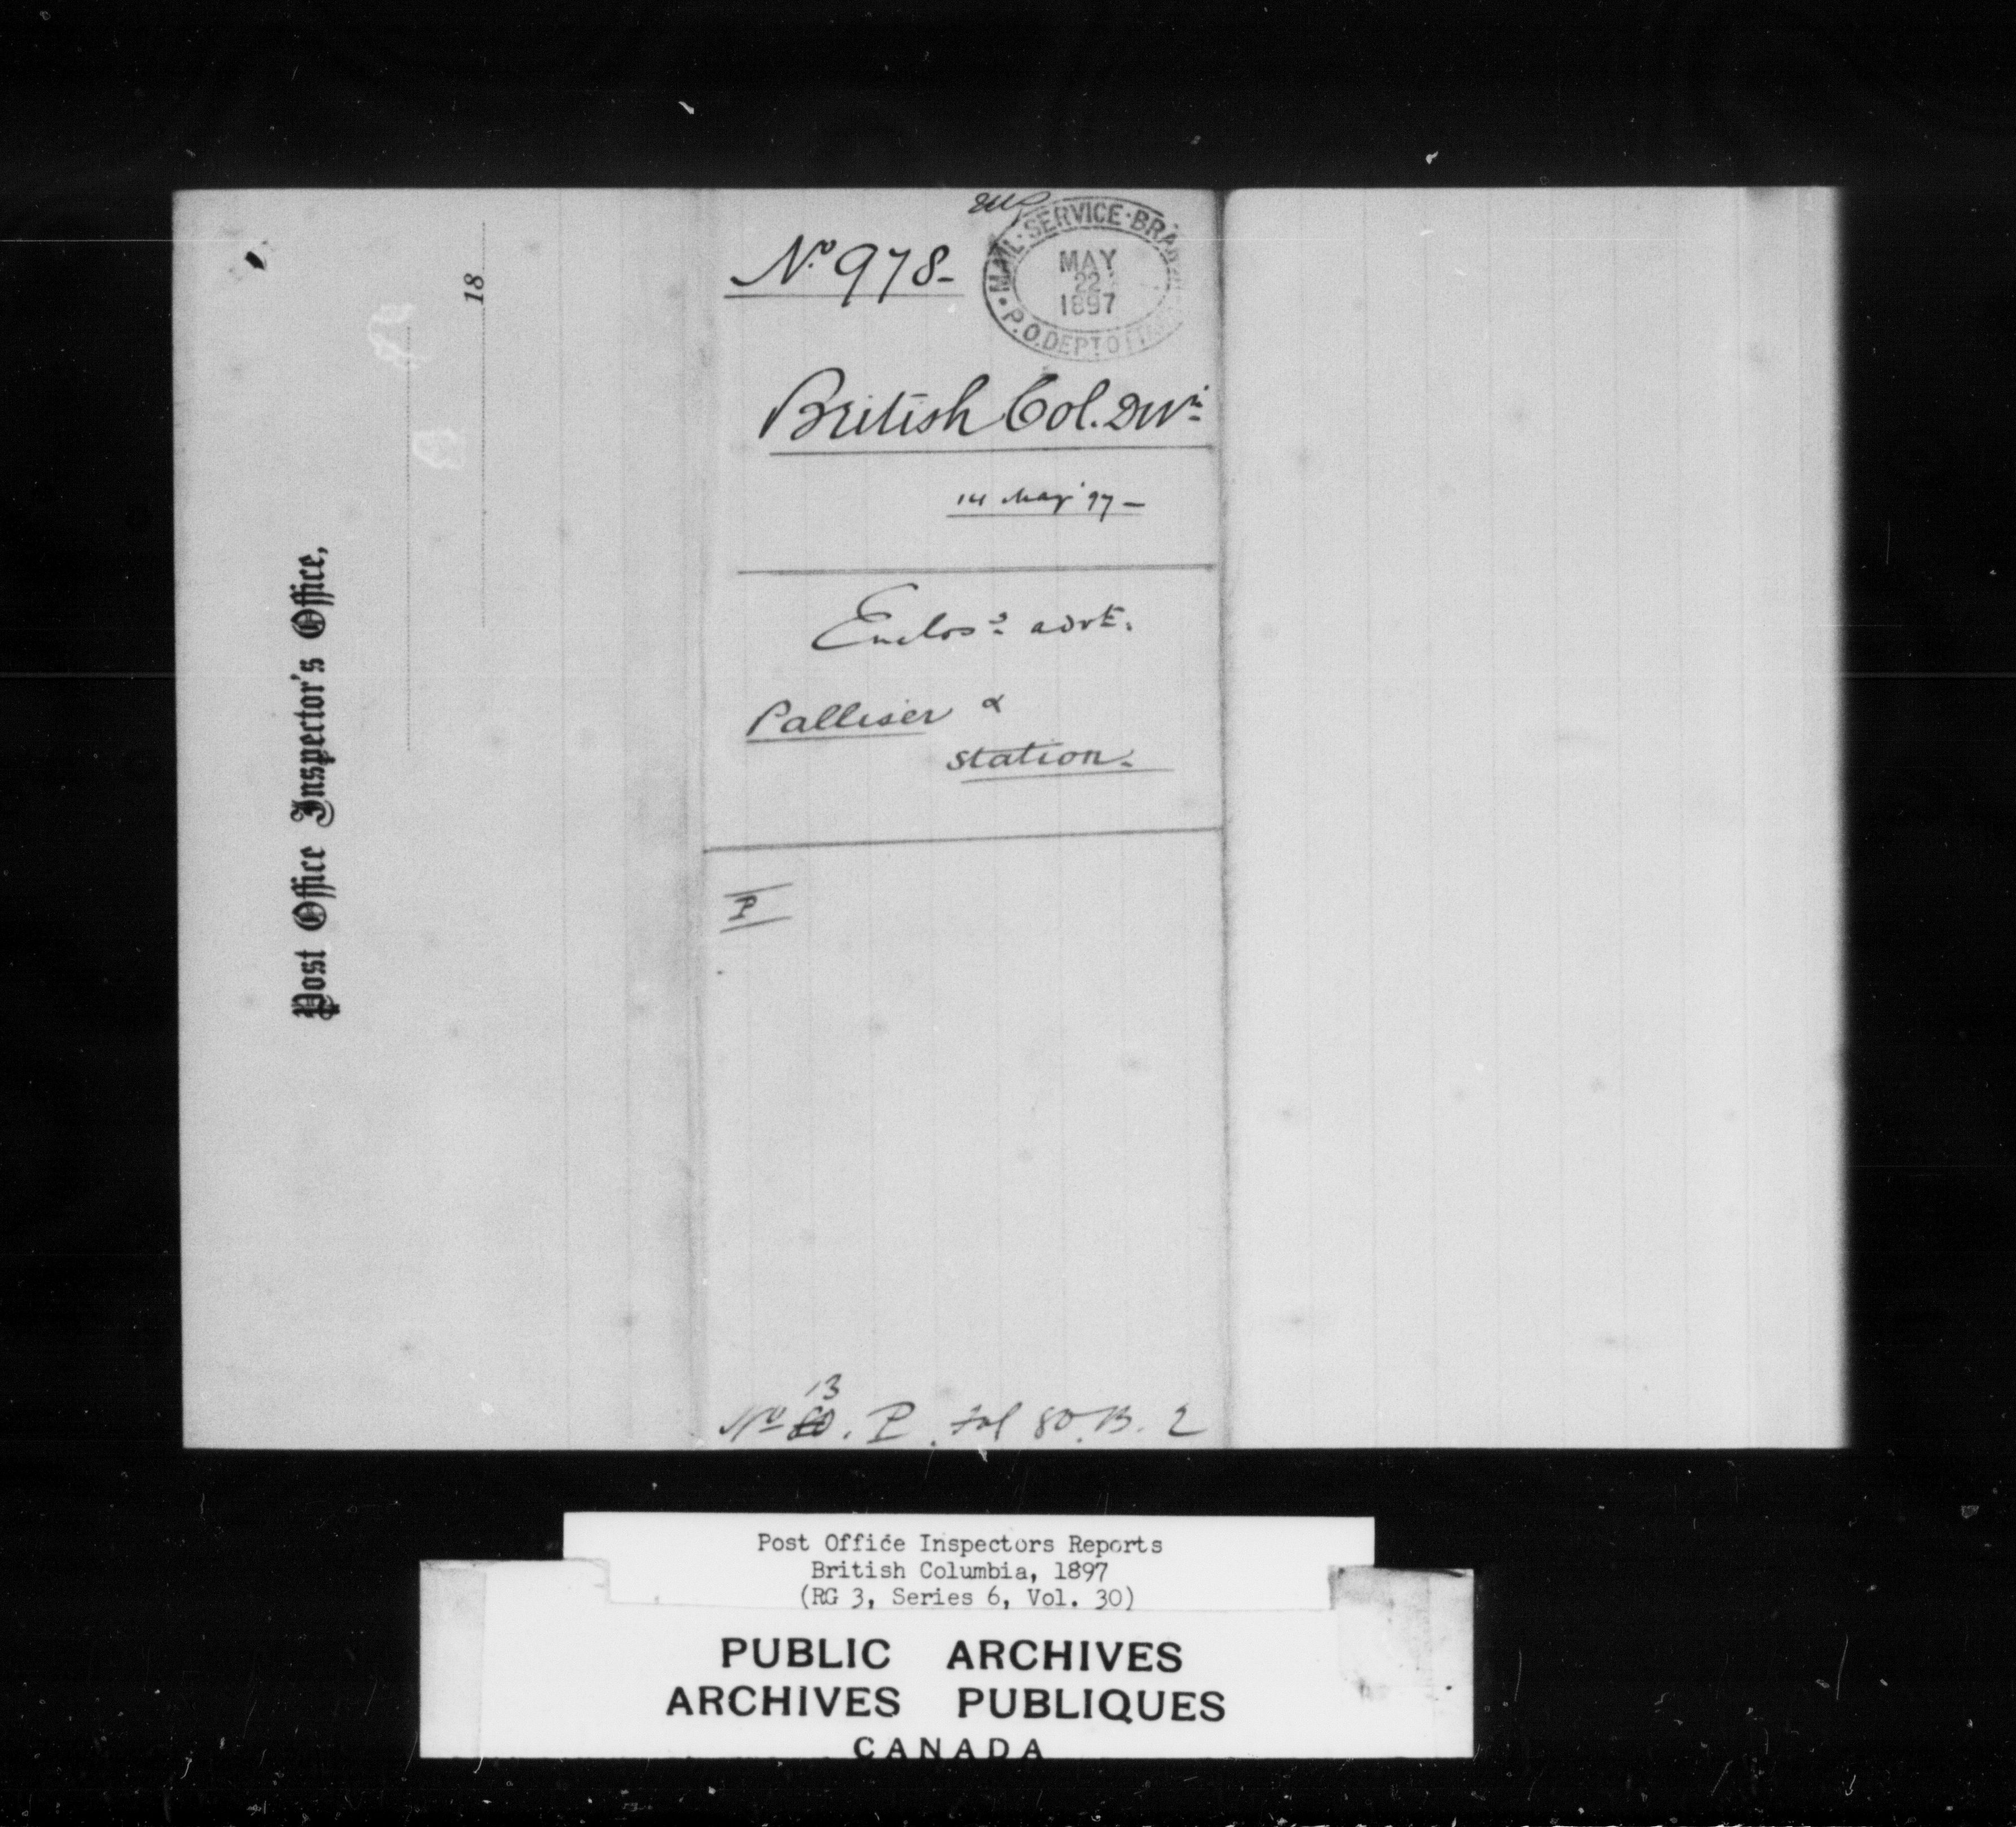 Post Office Inspector's Office,
18
No 978-
MAIL·SERVICE·BRA
MAY
22
1897
P.O.DEPT OTTAWA
British Col. Divn
14 May '97 -
Enclos.s advt.
Palliser &
station.
P
13
No 80. P. Fol 80. B. 2
Post Office Inspectors Reports
British Columbia, 1897
(RG 3, Series 6, Vol. 30)
PUBLIC ARCHIVES
ARCHIVES PUBLIQUES
CANADA